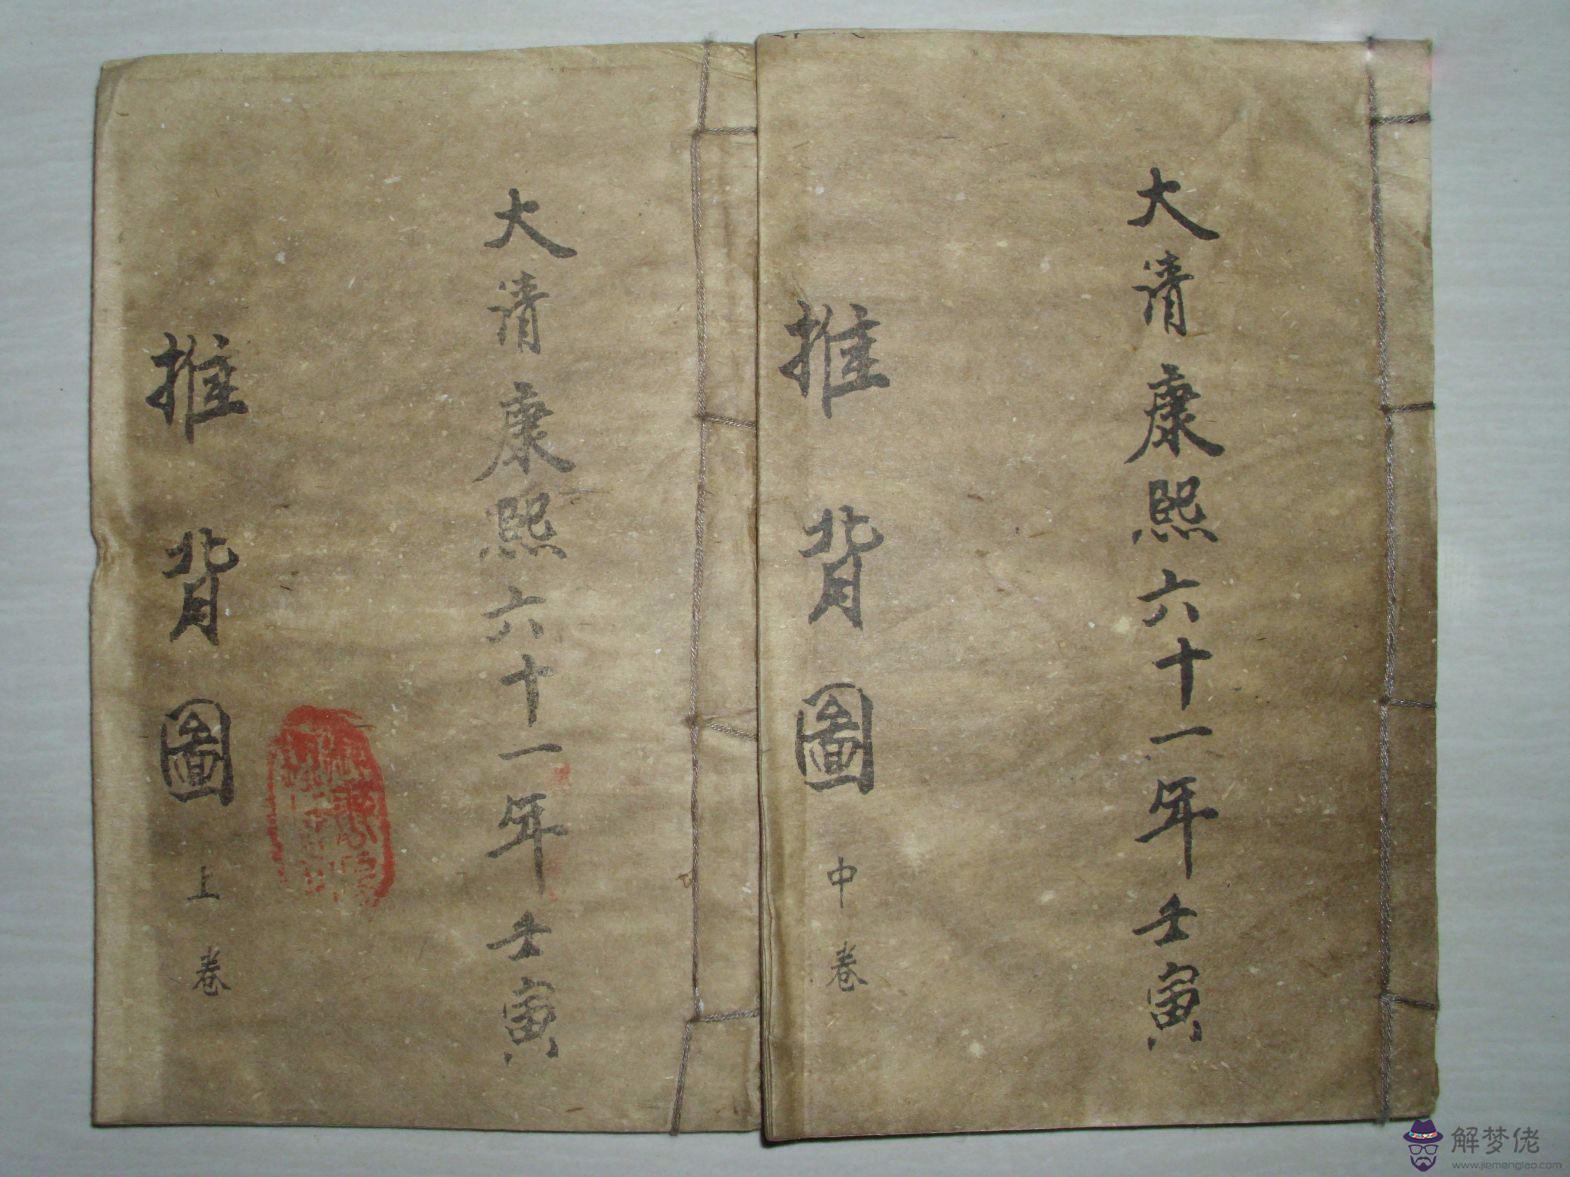 大清康熙六十一年壬寅
推背圖 中卷
大清康熙六十一年壬寅
推背圖 上卷
解梦佬
www.jiemenglao.com